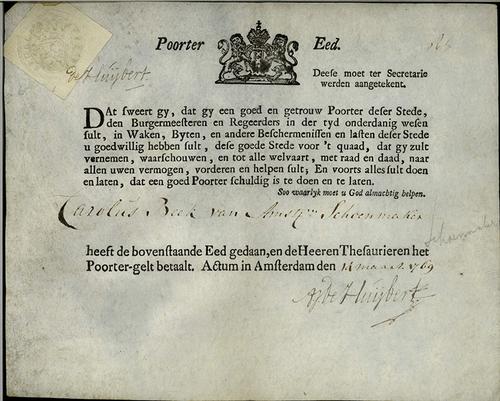 Poorter Eed.
de Huijbert.
Deese moet ter Secretarie
werden aangetekent.
DAt sweert gy, dat gy een goed en getrouw Poorter deser Stede,
den Burgermeesteren en Regeerders in der tyd onderdanig wesen
sult, in Waken, Byten, en andere Beschermenissen en lasten deser Stede
u goedwillig hebben sult, dese goede Stede voor 't quaad, dat gy zult
vernemen, waarschouwen, en tot alle welvaart, met raad en daad, naar
allen uwen vermogen, vorderen en helpen sult; En voorts alles sult doen
en laten, dat een goed Poorter schuldig is te doen en te laten.
Soo waarlyk moet u God almachtig helpen.
Carolus Beek van Amstm Schoenmaker
Schoenmaker
heeft de bovenstaande Eed gedaan, en de Heeren Thesaurieren het
Poorter-gelt betaalt. Actum in Amsterdam den maart 1769
de Huijbert